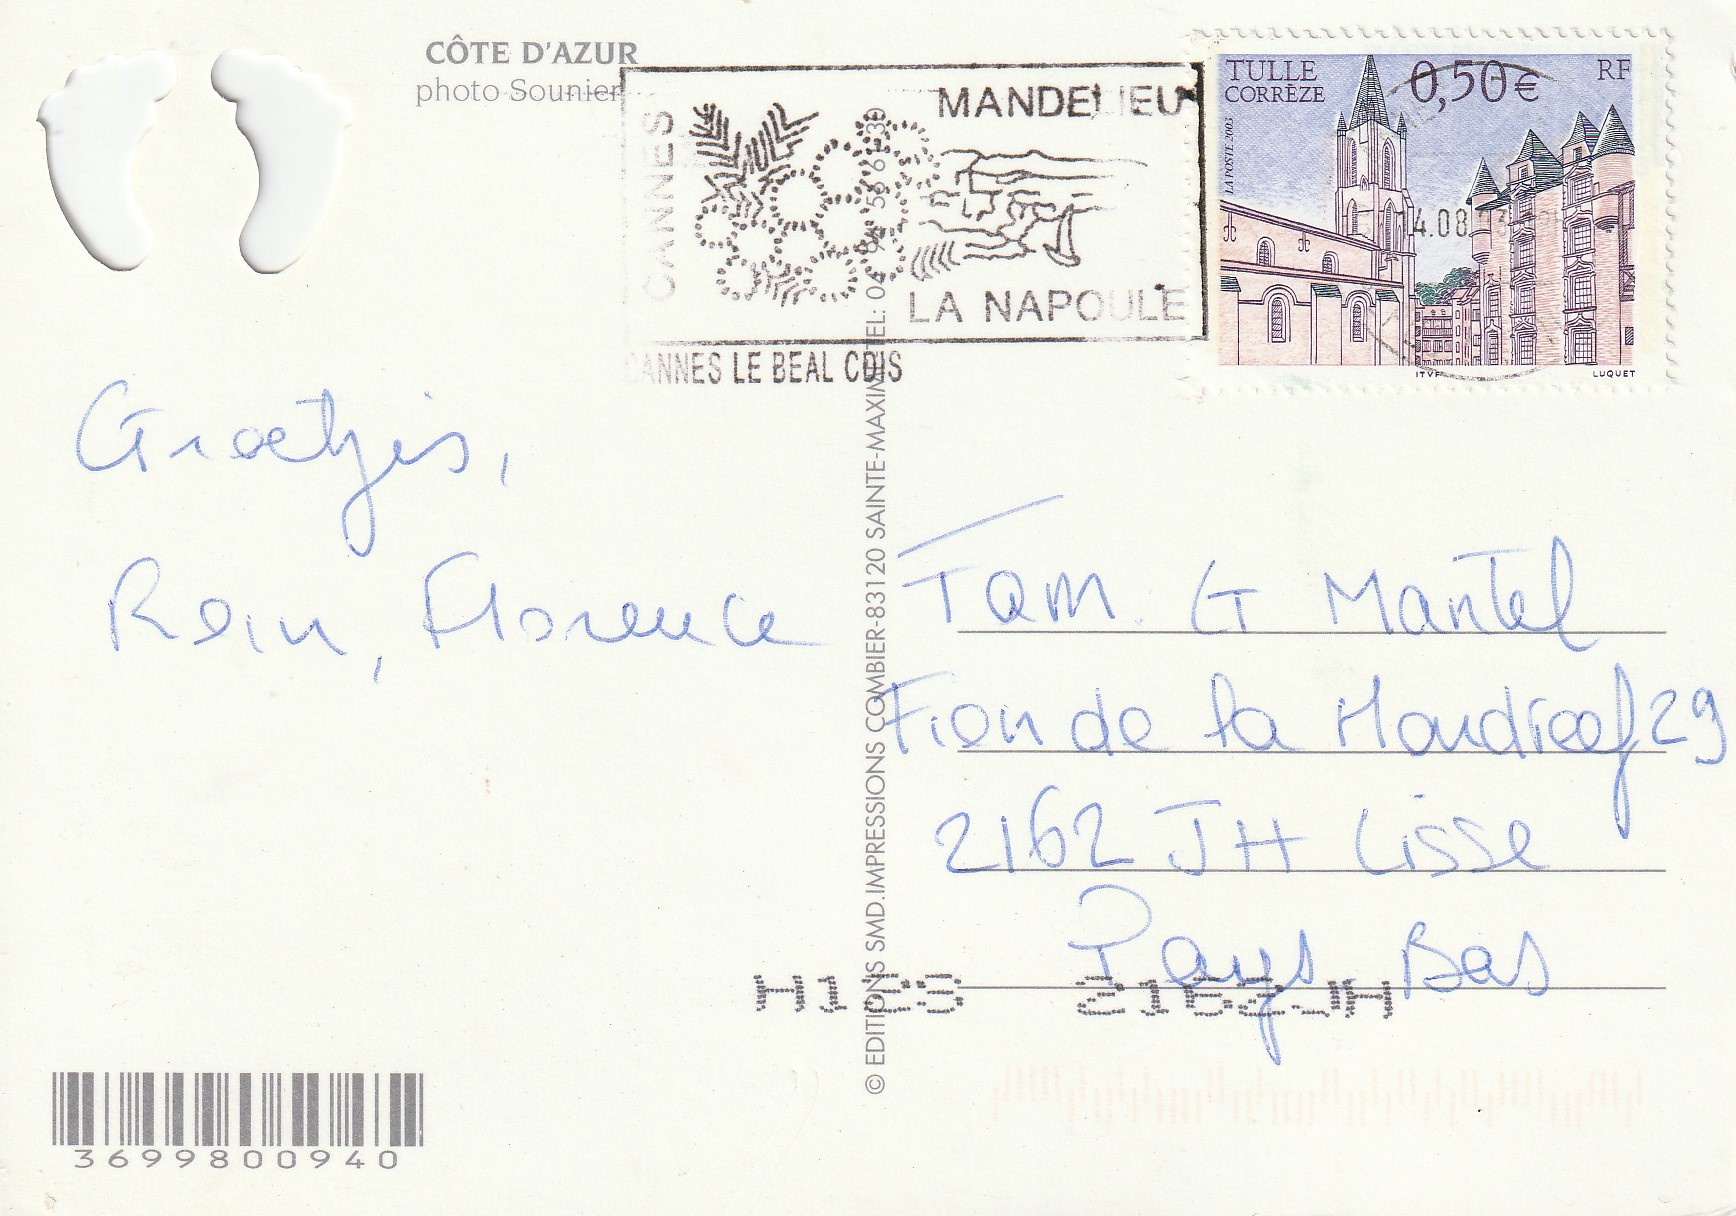 CÔTE D'AZUR
photo Sounier
CANNES
MANDELIEU
LA NAPOULE
CANNES LE BEAL CDIS
TULLE
CORRÈZE
0,50€
RF
LA POSTE 2003
4.08
ITVF
LUQUET
Groetjes,
Rein, Florence
© EDITIONS SMD. IMPRESSIONS COMBIER-83120 SAINTE-MAXIME TEL: 04 94 56 61 30
Fam. G Mantel
Fien de la Mardreef 29
2162 JH Lisse
Pays Bas
H1 23 2162JH
3699800940